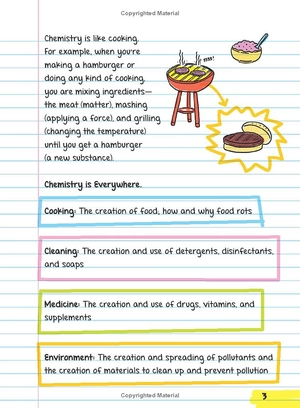 Copyrighted Material
Chemistry is like cooking.
For example, when you're
making a hamburger or
doing any kind of cooking,
you are mixing ingredients—
the meat (matter), mashing
(applying a force), and grilling
(changing the temperature)
until you get a hamburger
(a new substance).
Chemistry is Everywhere.
Cooking: The creation of food, how and why food rots
Cleaning: The creation and use of detergents, disinfectants,
and soaps
Medicine: The creation and use of drugs, vitamins, and
supplements
Environment: The creation and spreading of pollutants and
the creation of materials to clean up and prevent pollution
Copyrighted Material
3